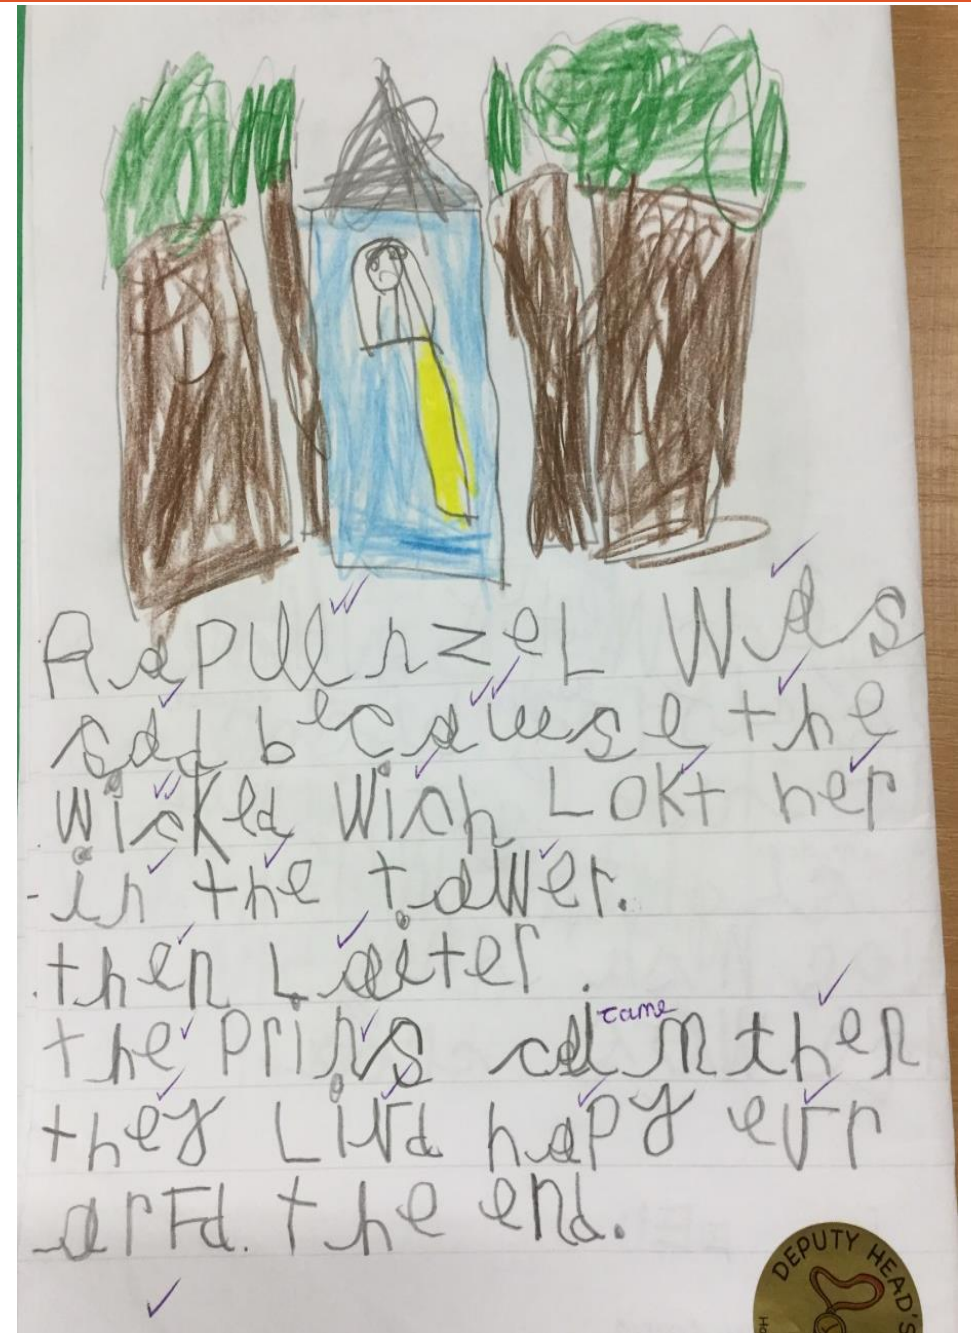 RapUllnzeL Was
sad because the
wicKed Wich LOKt her
in the tawer.
then Laiter.
the prins caim then
came
they Livd hapy evr
arFd. the end.
DEPUTY HEAD'S